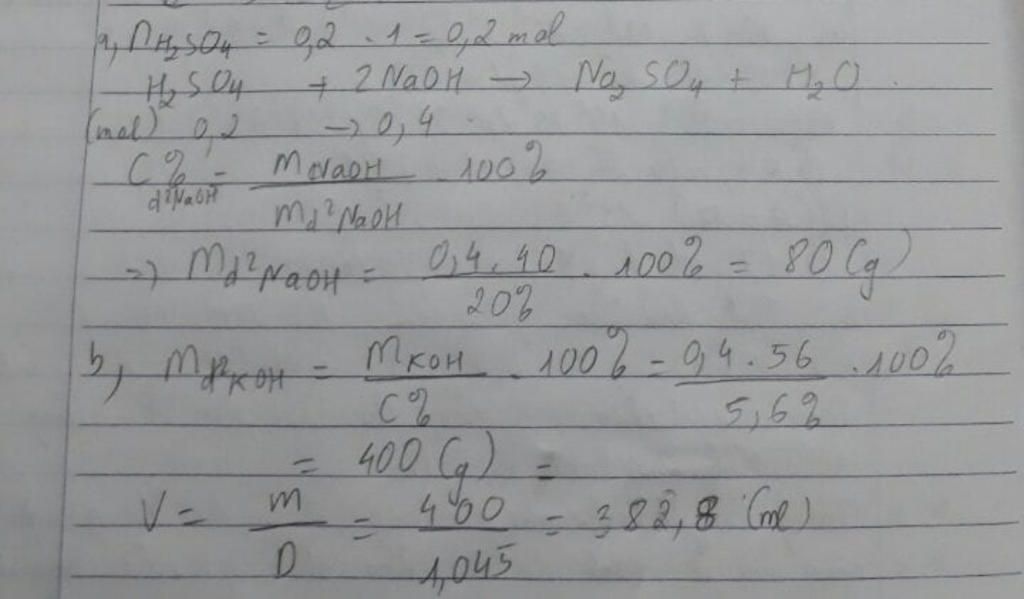 a, nH₂SO₄ = 0,2 . 1 = 0,2 mol
H₂SO₄ + 2NaOH → Na₂SO₄ + H₂O .
(mol) 0,2 → 0,4
C% d²NaOH = mNaOH / md²NaOH . 100%
=> md²NaOH = 0,4.40 / 20% . 100% = 80 (g)
b, md²KOH = mKOH / C% . 100% = 0,4.56 / 5,6% .100%
= 400 (g) =
V = m / D = 400 / 1,045 = 382,8 (ml)